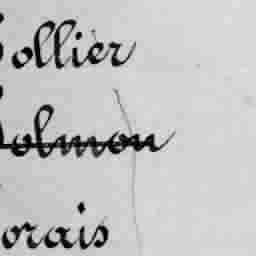 ollier
olmon
orais